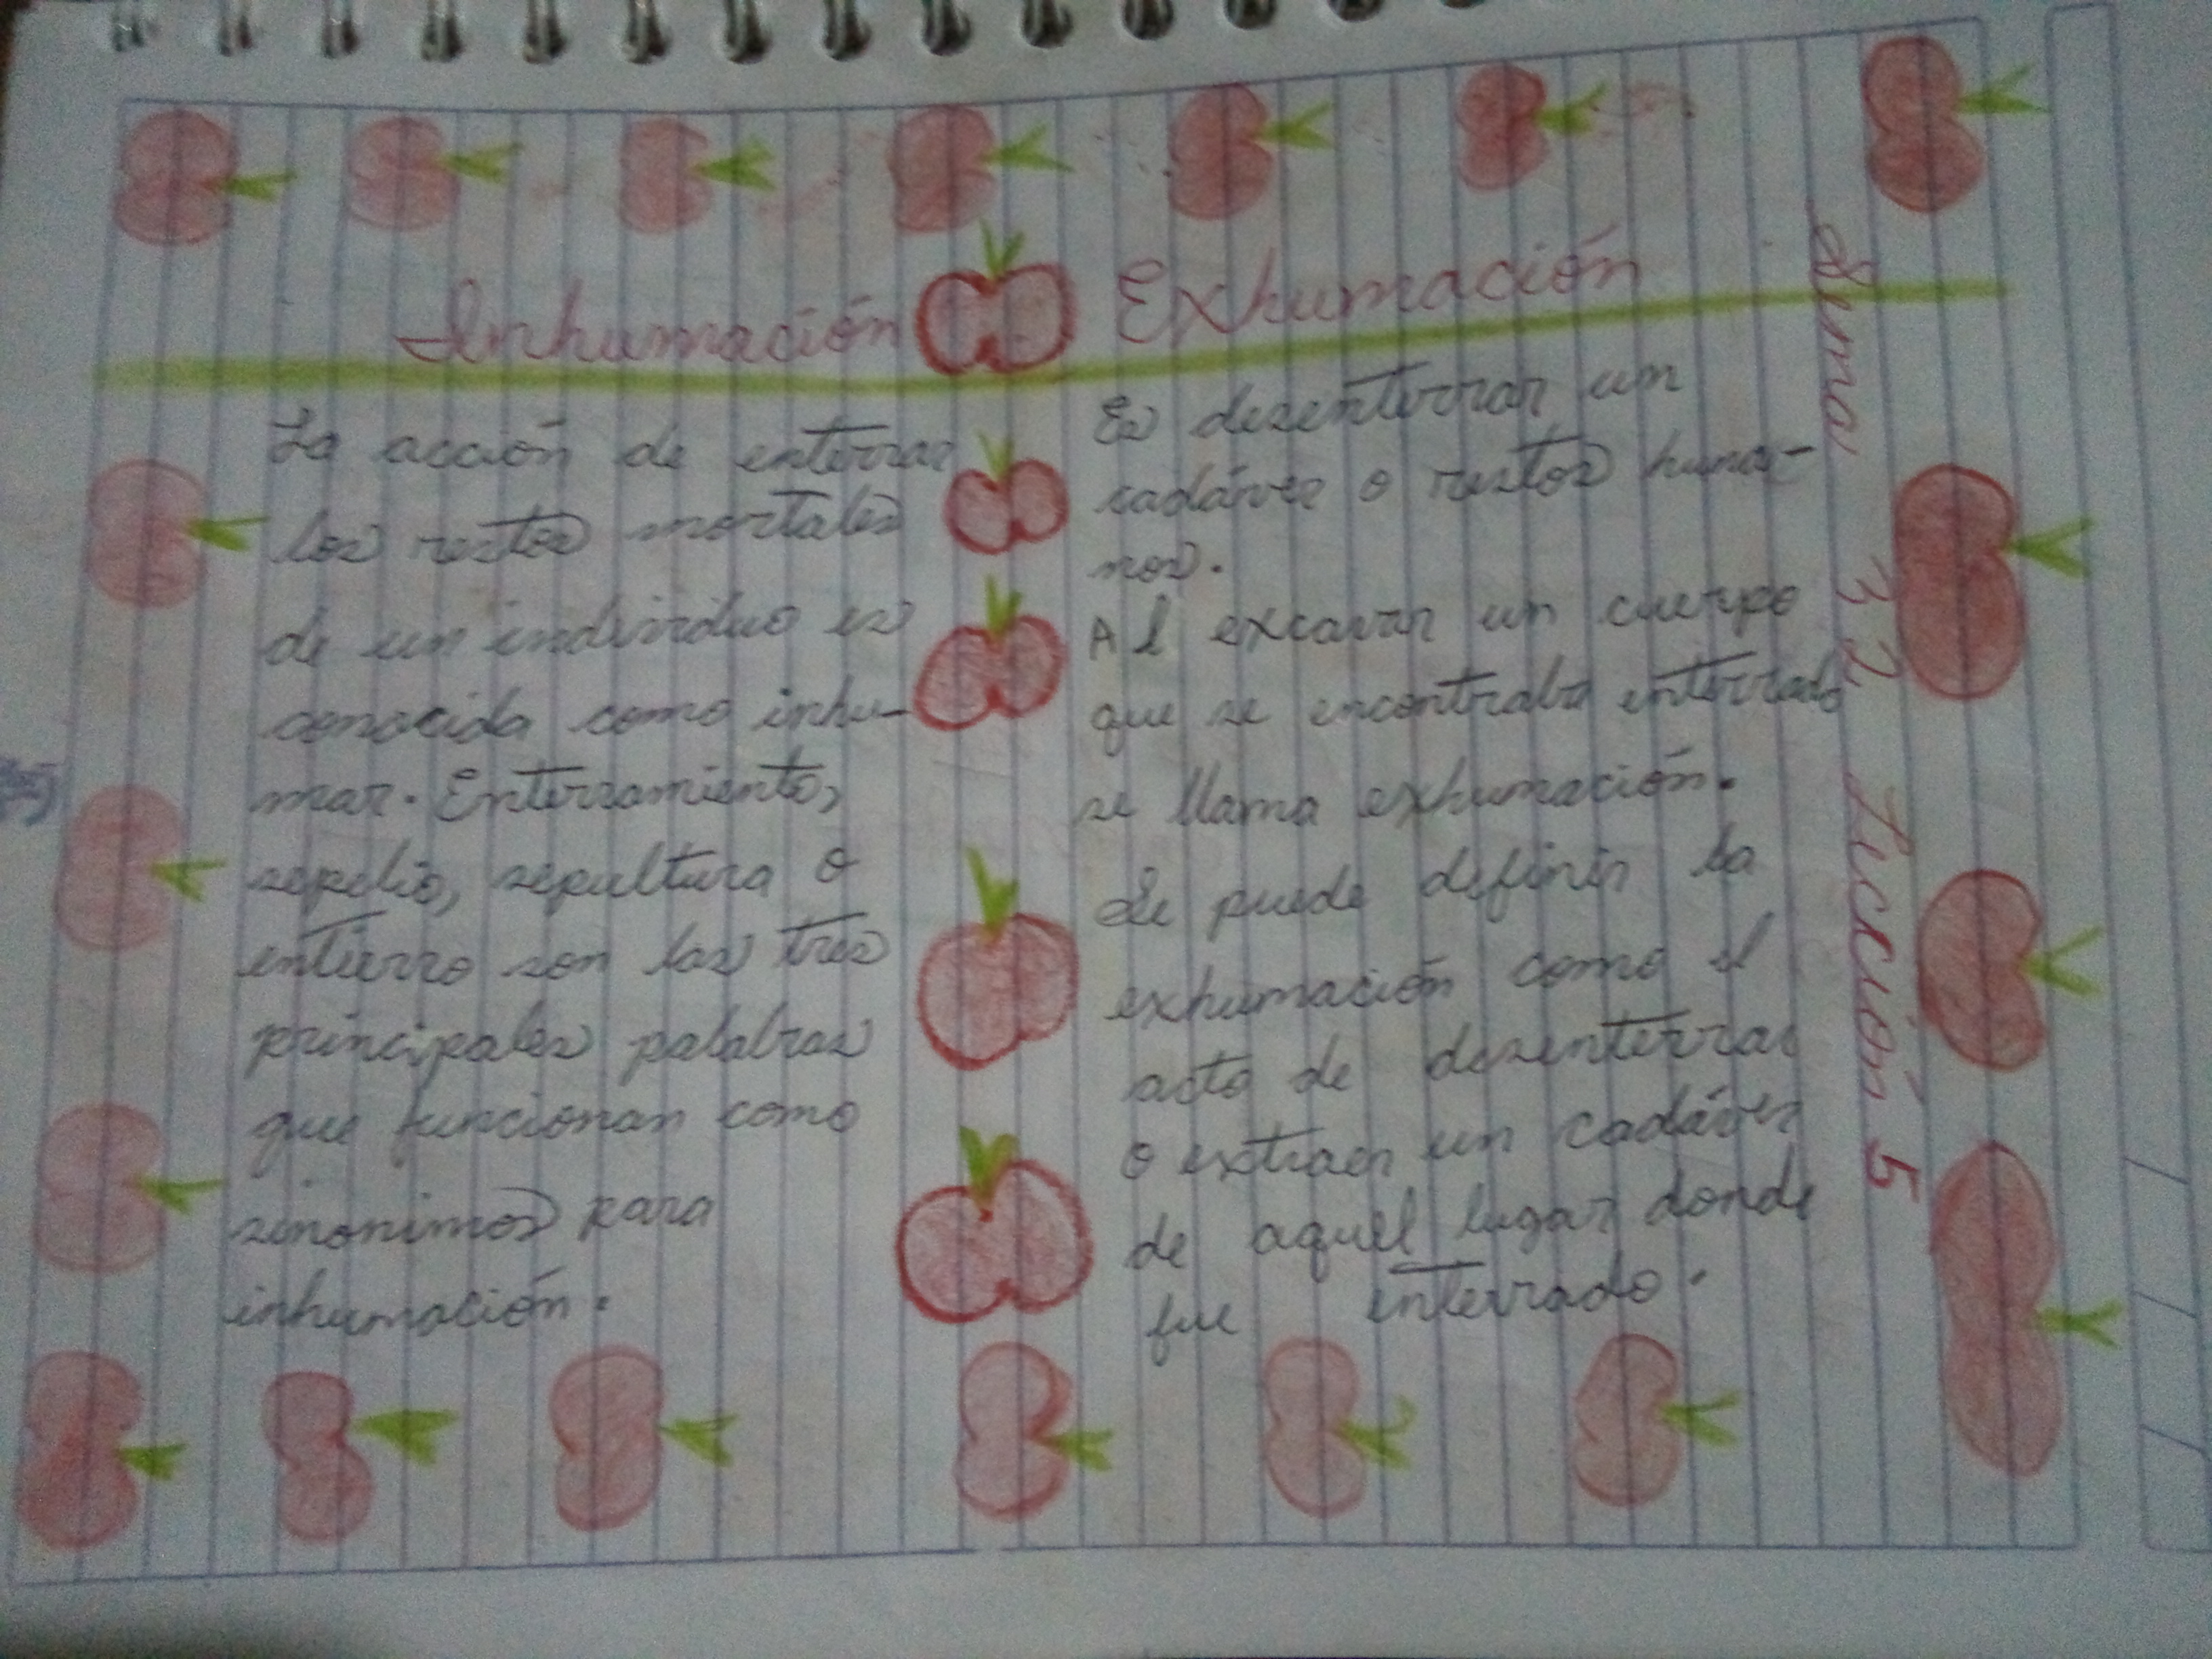 Inhumación
La acción de enterrar
los restos mortales
de un individuo es
conocida como inhu-
mar. Enterramiento,
sepelio, sepultura o
entierro son las tres
principales palabras
que funcionan como
sinonimos para
inhumación.
Exhumación
Es desenterrar un
cadáver o restos huma-
nos.
Al excavar un cuerpo
que se encontraba enterrado
se llama exhumación.
Se puede definir la
exhumación como el
acto de desenterrar
o extraer un cadáver
de aquel lugar donde
fue enterrado.
32 Lección 5